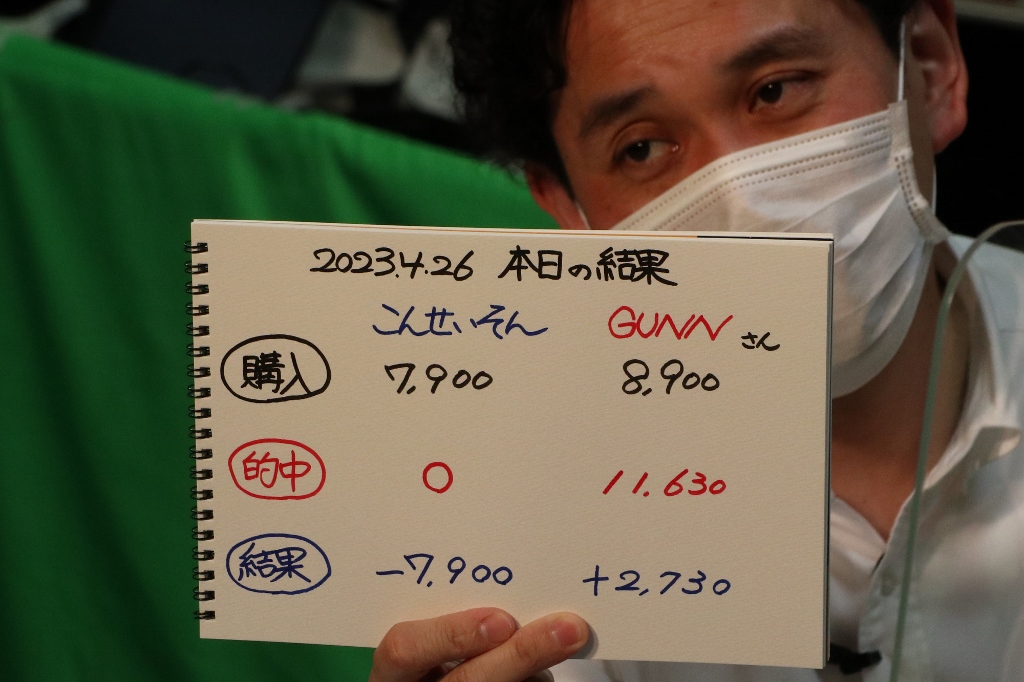 2023.4.26 本日の結果
こんせいそん GUNNさん
購入 7,900 8,900
的中 0 11.630
結果 -7,900 +2,730